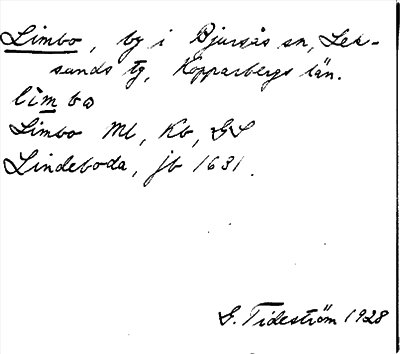 Limbo, by i Bjursås sn, Lek-
sands tg, Kopparbergs län.
lìmba
Limbo Ml, Kb, GS
Lindeboda, jb 1631.
G. Tideström 1928